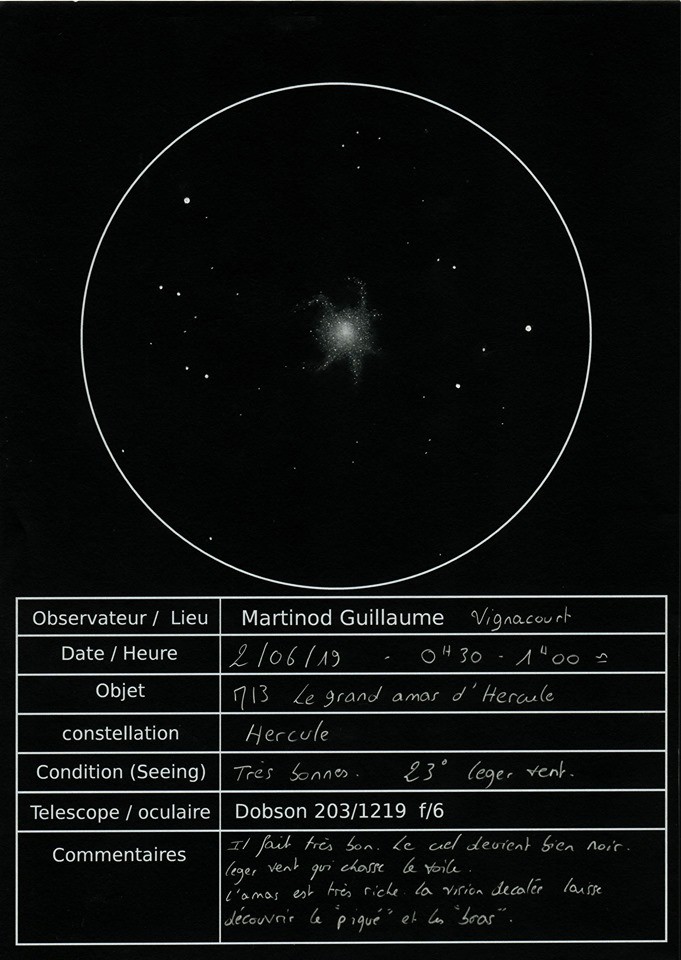 Observateur / Lieu Martinod Guillaume Vignacourt
Date / Heure 2/06/19 - 0H30 - 1H00 ≃
Objet M13 Le grand amas d'Hercule
constellation Hercule
Condition (Seeing) Très bonnes. 23° leger vent.
Telescope / oculaire Dobson 203/1219 f/6
Commentaires
Il fait très bon. Le ciel devient bien noir.
leger vent qui chasse le voile.
L'amas est très riche. la vision decalée laisse
découvrir le "piqué" et les "bras".